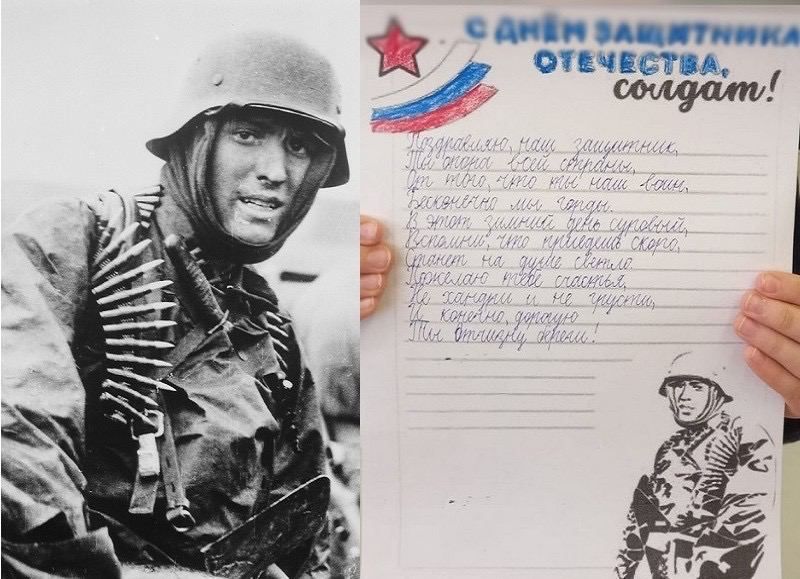 С ДНЁМ ЗАЩИТНИКА
ОТЕЧЕСТВА,
солдат!
Поздравляю, наш защитник,
Ты опора всей страны,
От того, что ты наш воин,
Бесконечно мы горды.
В этот зимний день суровый,
Вспомни: что приедешь скоро,
Станет на душе светло.
Пожелаю тебе счастья,
Не хандри и не грусти,
И конечно, дорогую
Ты отчизну береги!